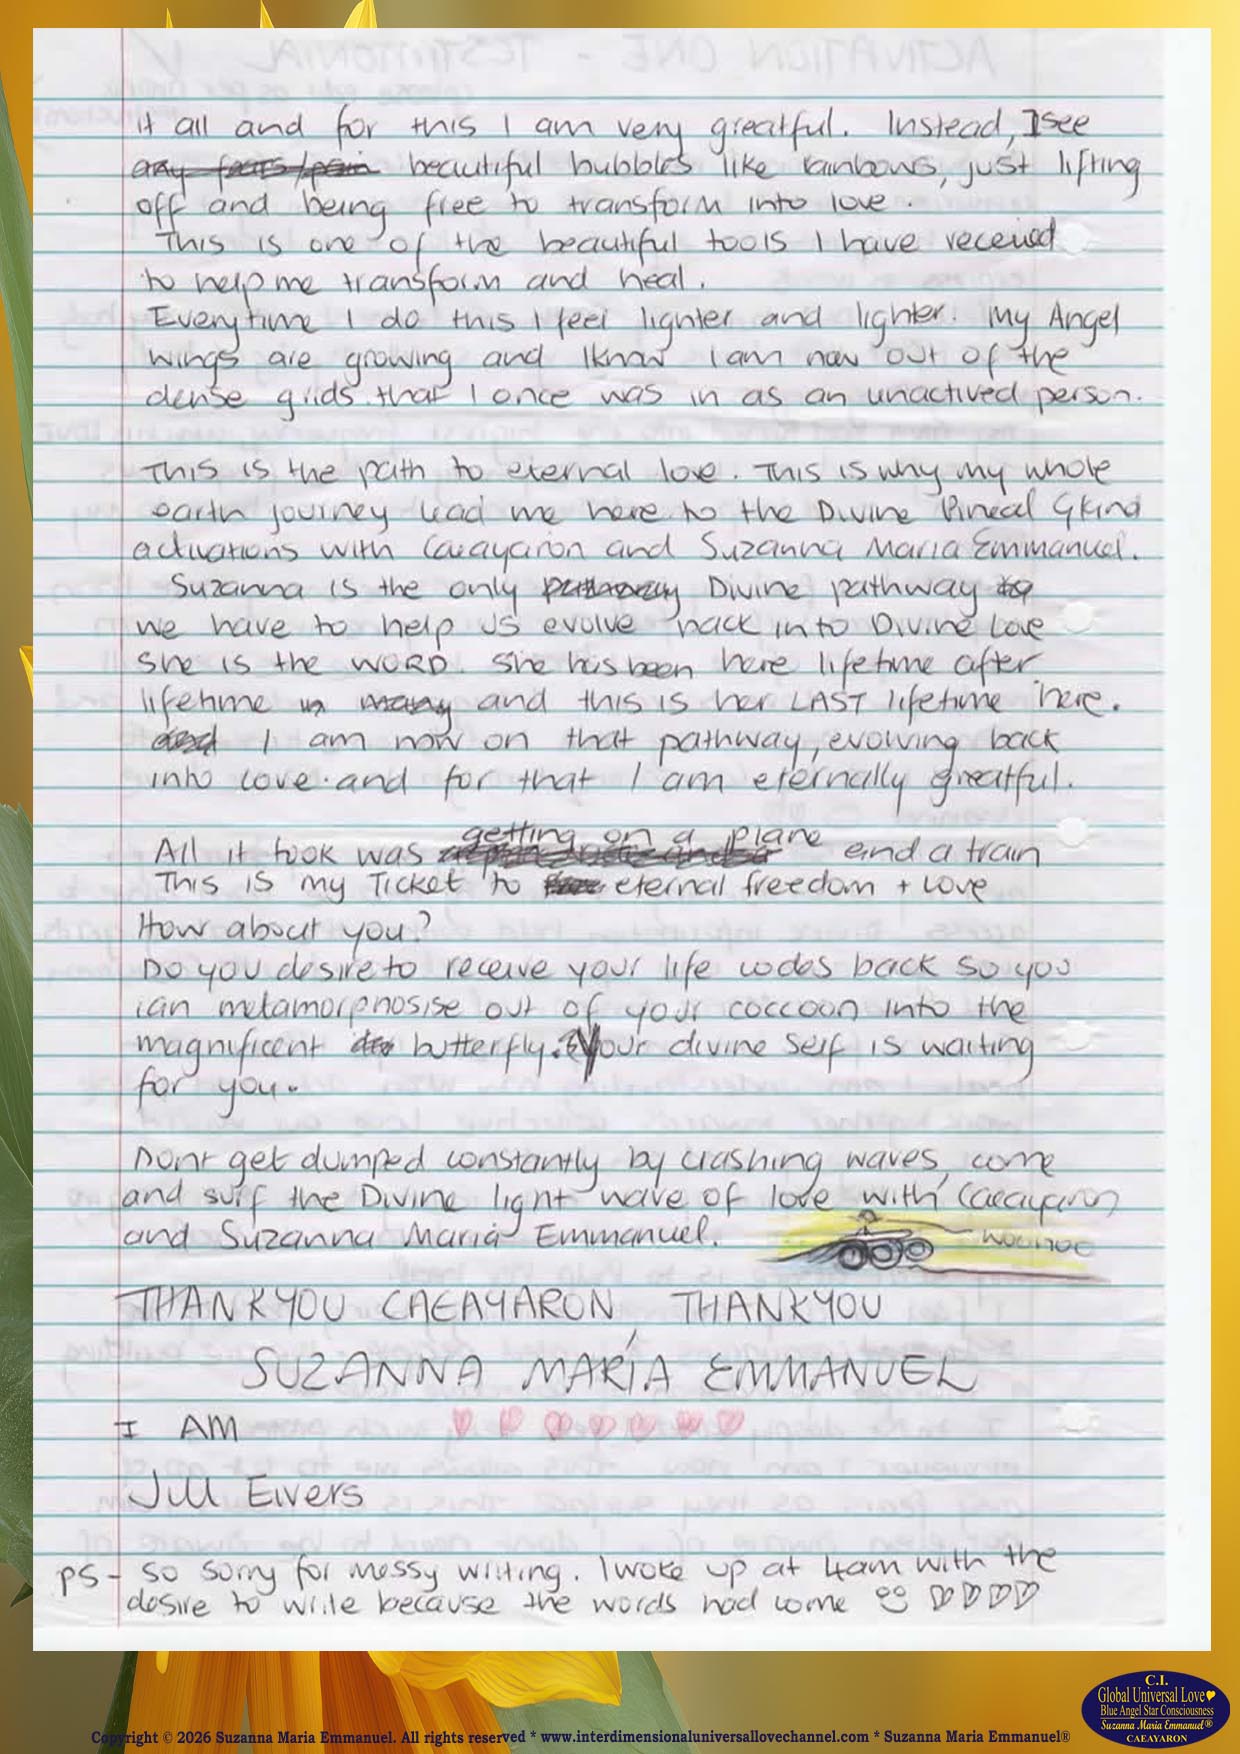 it all and for this I am very greatful. Instead, I see
any fears/pain beautiful bubbles like rainbows, just lifting
off and being free to transform into love.
This is one of the beautiful tools I have received
to help me transform and heal.
Everytime I do this I feel lighter and lighter. My Angel
wings are growing and I know I am now out of the
dense grids that I once was in as an unactived person.
This is the path to eternal love. This is why my whole
earth journey lead me here to the Divine Pineal Gkind
activations with Caeayaron and Suzanna Maria Emmanuel.
Suzanna is the only pathway Divine pathway to
we have to help us evolve back into Divine Love
She is the WORD. She has been here lifetime after
lifetime in many and this is her LAST lifetime here.
and I am now on that pathway, evolving back
into love. and for that I am eternally greatful.
getting on a plane
All it took was and a train
This is my Ticket to eternal freedom + Love
How about you?
Do you desire to receive your life codes back so you
can metamorphosise out of your coccoon into the
magnificent butterfly. Your divine self is waiting
for you.
Dont get dumped constantly by crashing waves, come
and surf the Divine light wave of love with Caeayaron
and Suzanna Maria Emmanuel.
WOOHOO
THANKYOU CAEAYARON, THANKYOU
SUZANNA MARIA EMMANUEL
I AM
Jill Eivers
PS - So sorry for messy writing. I woke up at 4am with the
desire to write because the words had come
C.I.
Global Universal Love
Blue Angel Star Consciousness
Suzanna Maria Emmanuel®
CAEAYARON
Copyright © 2026 Suzanna Maria Emmanuel. All rights reserved * www.interdimensionaluniversallovechannel.com * Suzanna Maria Emmanuel®